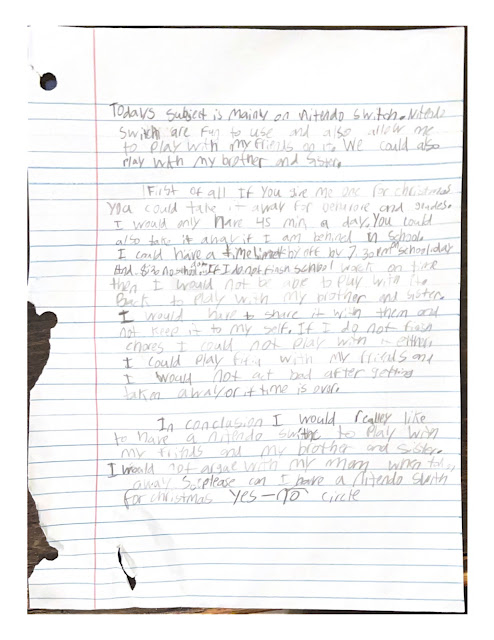 Todays subject is mainly on nitendo switch. Nitendo
Switch are fun to use and also allow me
to play with my friends on it. We could also
play with my brother and sister.
First of all If you give me one for christmas
you could take it away for behavior and grades.
I would only have 45 min a day. You could
also take it away if I am behind in school.
I could have a time limit by off by 7:30 pm on school day
And 8:30 no school day. If I do not finsh school work on time
then I would not be able to play with it.
Back to play with my brother and sister.
I would have to share it with them and
not keep it to my self. If I do not finsh
chores I could not play with it either.
I could play with my friends and
I would not act bad after getting
taken away or if time is over.
In conclusion I would really like
to have a nitendo swithe to play with
my friends and my brother and sister.
I would not argue with my mom when
away. So please can I have a nitendo swith
for christmas Yes - no circle